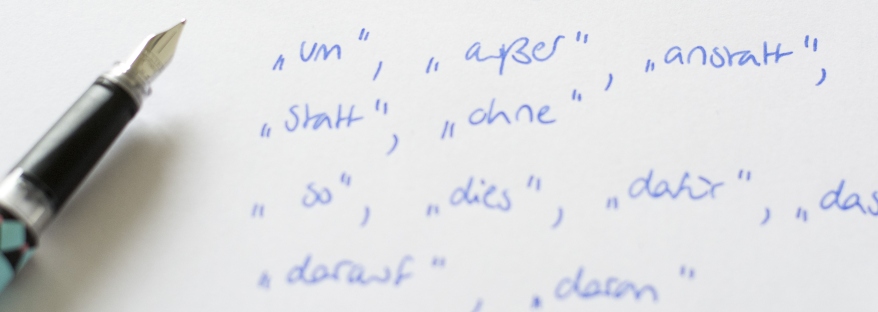 „um“, „außer“, „anstatt“,
„statt“, „ohne“
„so“, „dies“, „dafür“, „das
„darauf“, „daran“